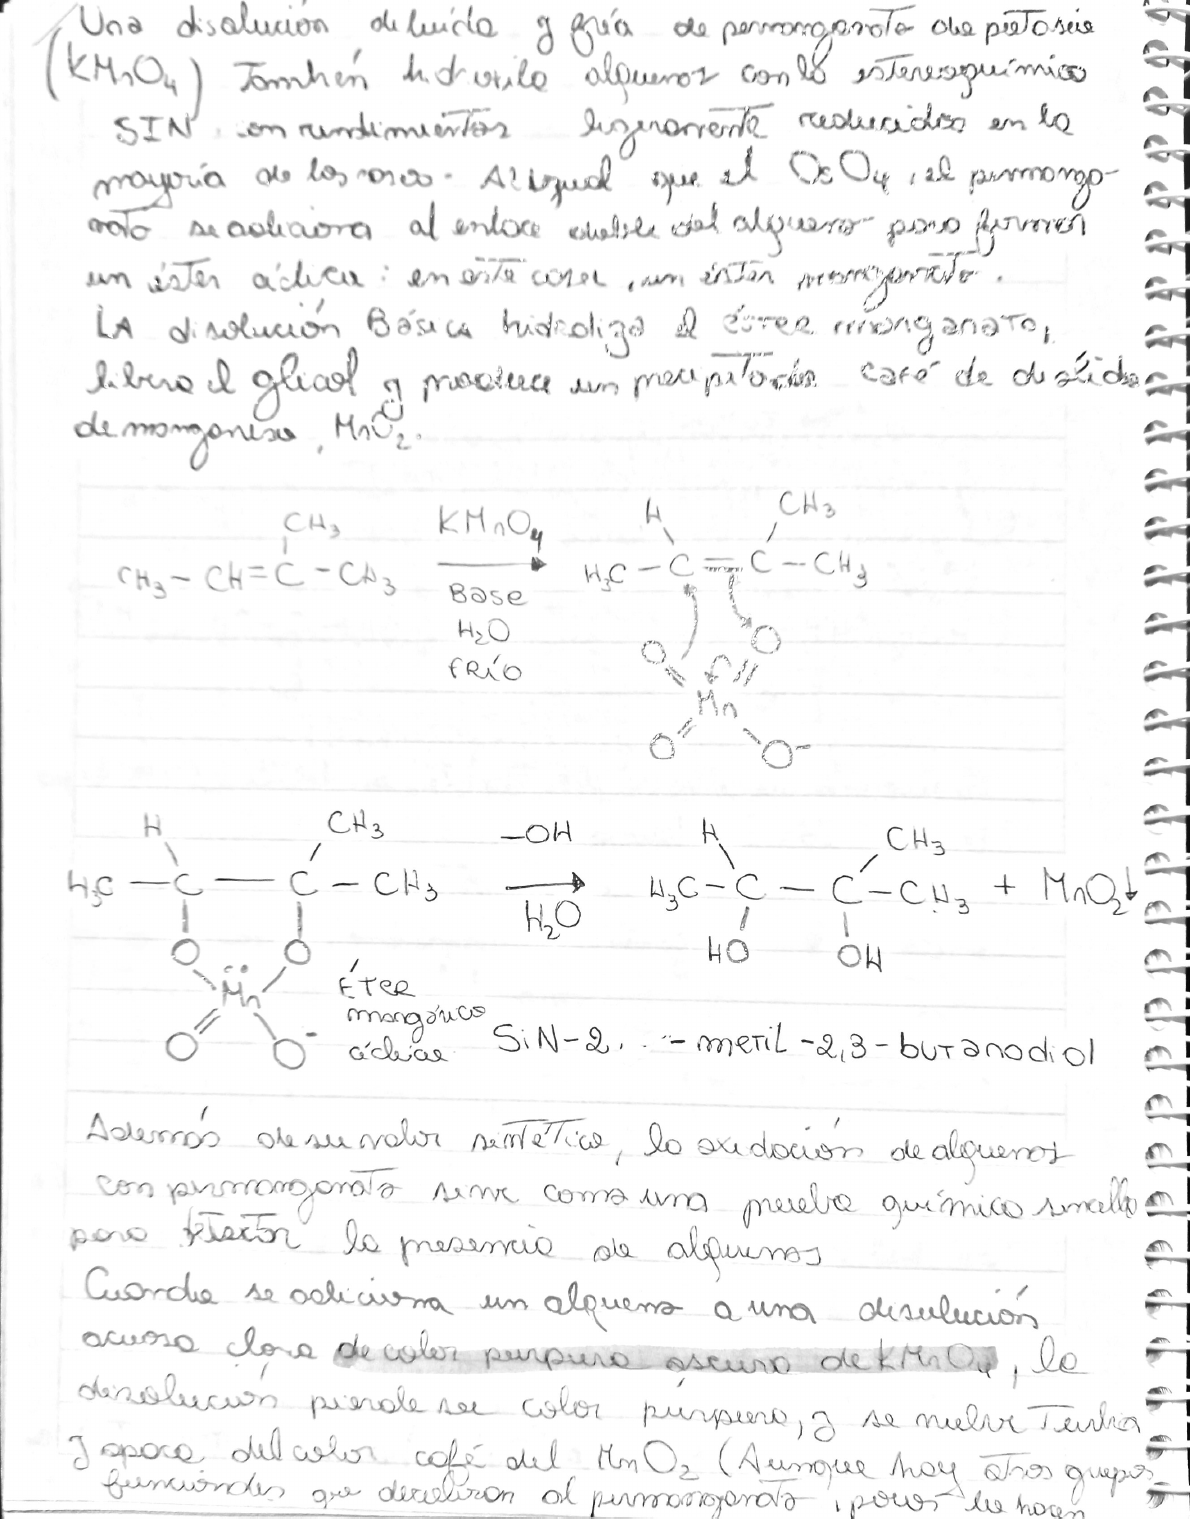 Una disolución diluída y fría de permanganato de potasio
(KMnO4) También hidroxila alquenos con la estereoquímica
SIN, con rendimientos ligeramente reducidos en la
mayoría de los casos. Al igual que el OsO4, el permanga-
nato se adiciona al enlace doble del alqueno para formar
un éster cíclico: en este caso, un éster manganato.
LA disolución Básica hidroliza el éster manganato,
libera el glicol y produce un precipitado café de dióxido
de manganeso, MnO2.
CH3 KMnO4 H CH3
CH3 - CH = C - CH3 H3C - C = C - CH3
Base
H2O O O
FRÍO
Mn
O O-
H CH3 -OH H CH3
H3C - C - C - CH3 H2O H3C - C - C - CH3 + MnO2↓
O O HO OH
Mn ÉTER
O O- mangánico
SiN-2. - metil -2,3-butanodiol
Además de su valor sintético, la oxidación de alquenos
con permanganato sirve como una prueba química sencilla
para la presencia de alquenos
Cuando se adiciona un alqueno a una disolución
acuosa clara de color púrpura oscuro de KMnO4, la
disolución pierde su color púrpura, y se vuelve Turbia
y opaca del color café del MnO2 (Aunque hay otros grupos
funcionales que decoloran al permanganato, pocos lo hacen